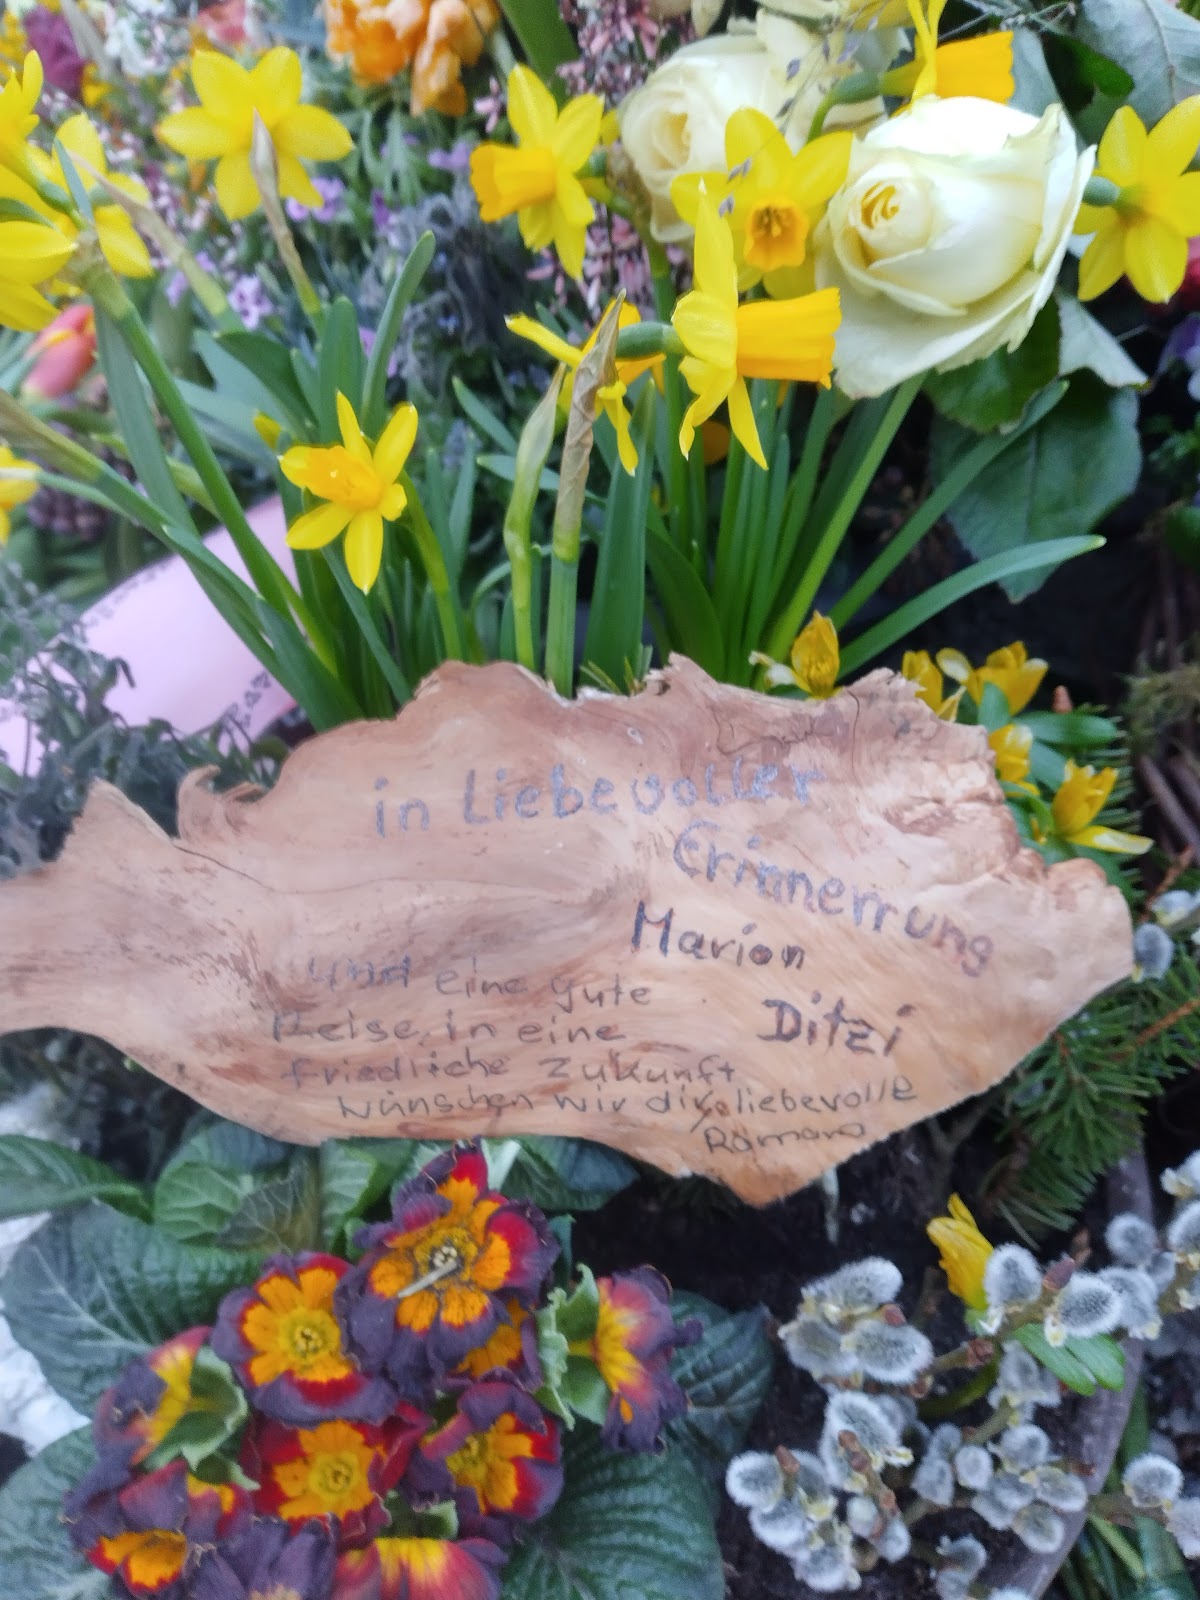 in Liebevoller
Erinnerrung
Marion
Ditzi
und eine gute
Reise, in eine
friedliche Zukunft
wünschen wir dir, liebevolle
Ramona